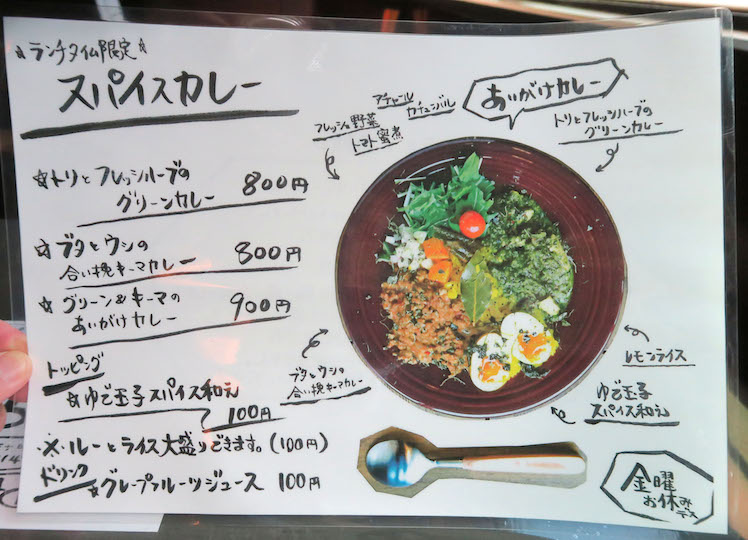 ☆ランチタイム限定☆
スパイスカレー
☆トリとフレッシュハーブの
グリーンカレー 800円
☆ブタとウシの
合い挽キーマカレー 800円
☆グリーン&キーマの
あいがけカレー 900円
トッピング
☆ゆで玉子スパイス和え
100円
※・ルーとライス大盛りできます。(100円)
ドリンク
☆グレープフルーツジュース 100円
あいがけカレー
アチャール
カチュンバル
フレッシュ野菜
トマト蜜煮
トリとフレッシュハーブの
グリーンカレー
ブタとウシの
合い挽キーマカレー
レモンライス
ゆで玉子
スパイス和え
金曜
お休み
デス